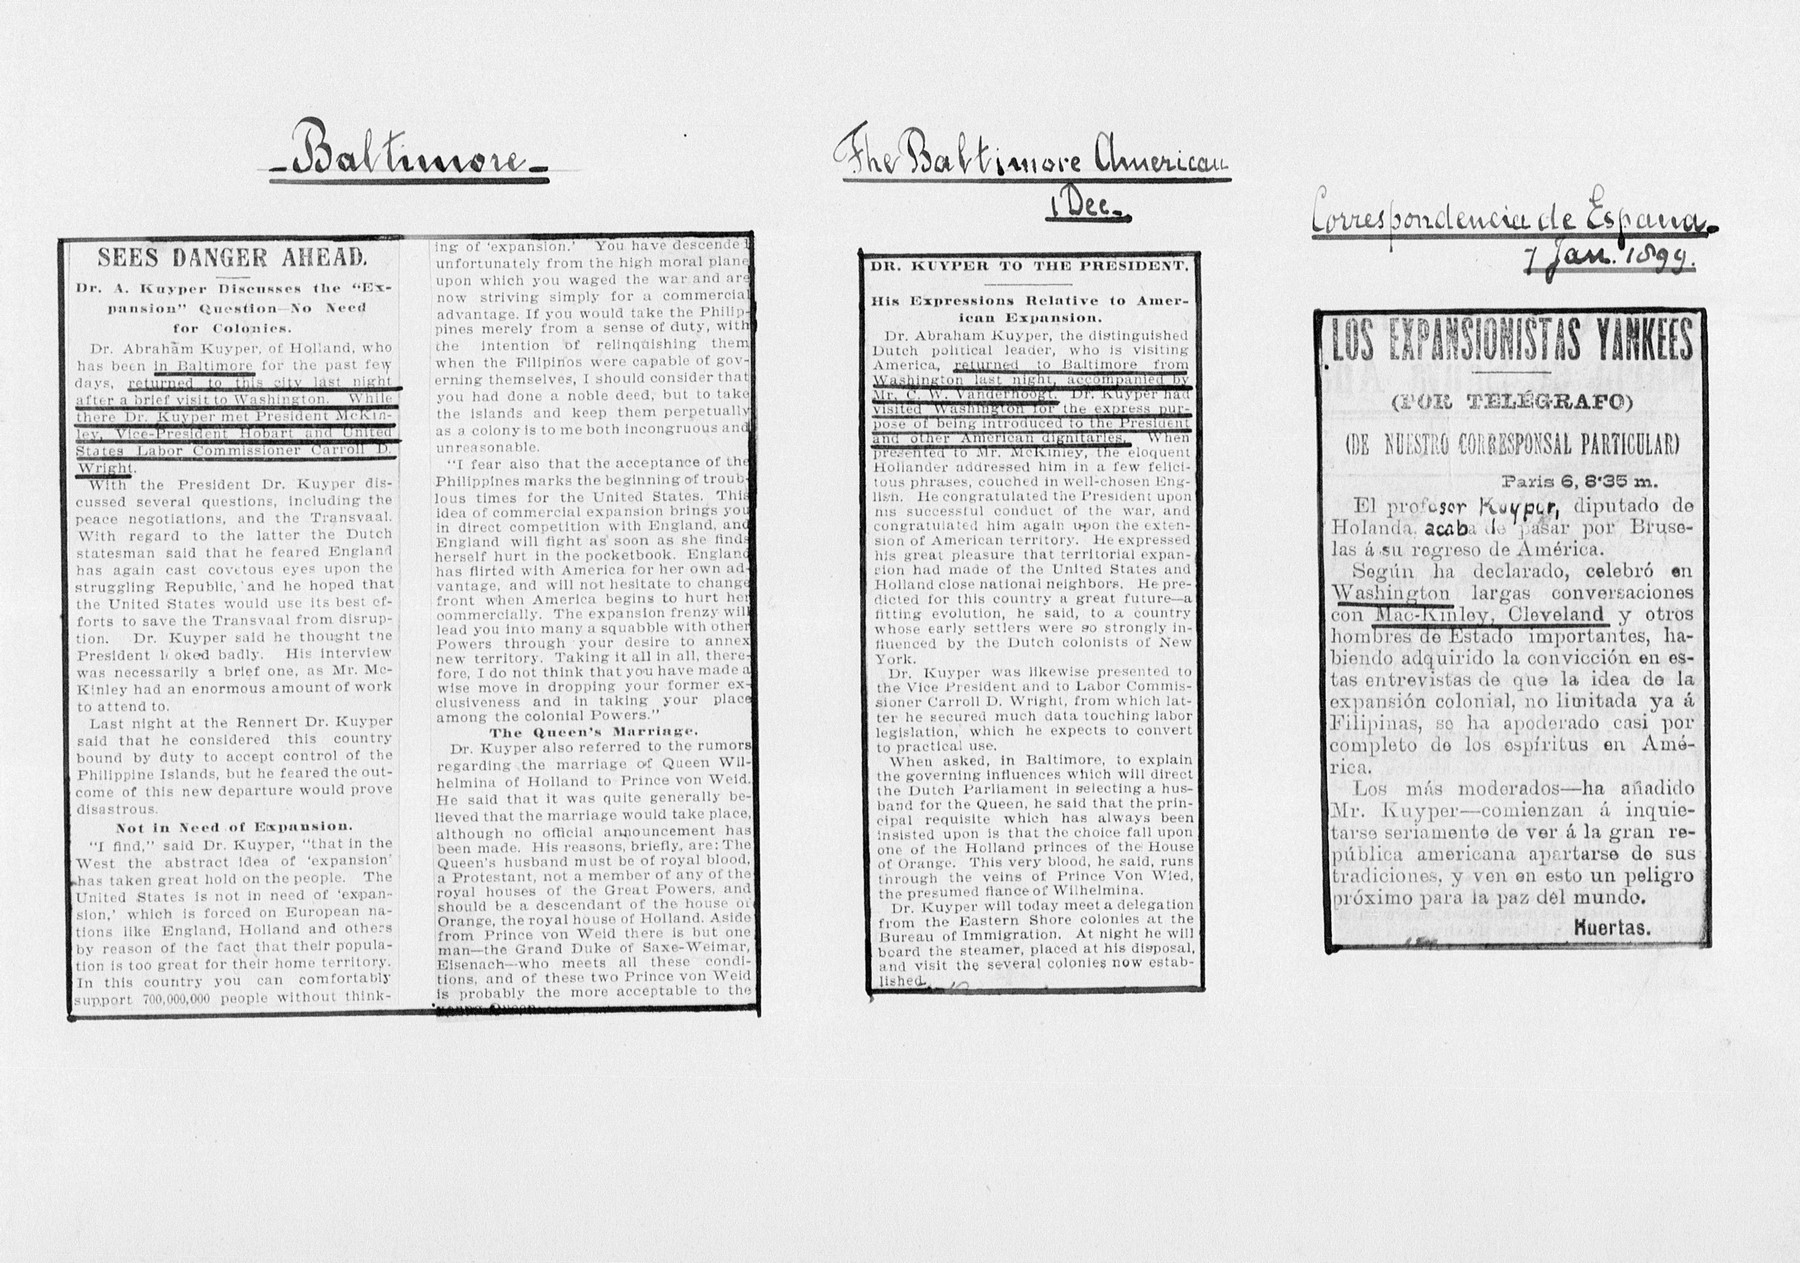 -Baltimore-
SEES DANGER AHEAD.
Dr. A. Kuyper Discusses the “Ex-
pansion” Question—No Need
for Colonies.
Dr. Abraham Kuyper, of Holland, who
has been in Baltimore for the past few
days, returned to this city last night
after a brief visit to Washington. While
there Dr. Kuyper met President McKin-
ley, Vice-President Hobart and United
States Labor Commissioner Carroll D.
Wright.
With the President Dr. Kuyper dis-
cussed several questions, including the
peace negotiations, and the Transvaal.
With regard to the latter the Dutch
statesman said that he feared England
has again cast covetous eyes upon the
struggling Republic, and he hoped that
the United States would use its best ef-
forts to save the Transvaal from disrup-
tion. Dr. Kuyper said he thought the
President looked badly. His interview
was necessarily a brief one, as Mr. Mc-
Kinley had an enormous amount of work
to attend to.
Last night at the Rennert Dr. Kuyper
said that he considered this country
bound by duty to accept control of the
Philippine Islands, but he feared the out-
come of this new departure would prove
disastrous.
Not in Need of Expansion.
“I find,” said Dr. Kuyper, “that in the
West the abstract idea of ‘expansion’
has taken great hold on the people. The
United States is not in need of ‘expan-
sion,’ which is forced on European na-
tions like England, Holland and others
by reason of the fact that their popula-
tion is too great for their home territory.
In this country you can comfortably
support 700,000,000 people without think-
ing of ‘expansion.’ You have descended
unfortunately from the high moral plane
upon which you waged the war and are
now striving simply for a commercial
advantage. If you would take the Philip-
pines merely from a sense of duty, with
the intention of relinquishing them
when the Filipinos were capable of gov-
erning themselves, I should consider that
you had done a noble deed, but to take
the islands and keep them perpetually
as a colony is to me both incongruous and
unreasonable.
“I fear also that the acceptance of the
Philippines marks the beginning of troub-
lous times for the United States. This
idea of commercial expansion brings you
in direct competition with England, and
England will fight as soon as she finds
herself hurt in the pocketbook. England
has flirted with America for her own ad-
vantage, and will not hesitate to change
front when America begins to hurt her
commercially. The expansion frenzy will
lead you into many a squabble with other
Powers through your desire to annex
new territory. Taking it all in all, there-
fore, I do not think that you have made a
wise move in dropping your former ex-
clusiveness and in taking your place
among the colonial Powers.”
The Queen’s Marriage.
Dr. Kuyper also referred to the rumors
regarding the marriage of Queen Wil-
helmina of Holland to Prince von Weid.
He said that it was quite generally be-
lieved that the marriage would take place,
although no official announcement has
been made. His reasons, briefly, are: The
Queen’s husband must be of royal blood,
a Protestant, not a member of any of the
royal houses of the Great Powers, and
should be a descendant of the house of
Orange, the royal house of Holland. Aside
from Prince von Weid there is but one
man—the Grand Duke of Saxe-Weimar,
Eisenach—who meets all these condi-
tions, and of these two Prince von Weid
is probably the more acceptable to the
young Queen.
The Baltimore American
1 Dec.
DR. KUYPER TO THE PRESIDENT.
His Expressions Relative to Amer-
ican Expansion.
Dr. Abraham Kuyper, the distinguished
Dutch political leader, who is visiting
America, returned to Baltimore from
Washington last night, accompanied by
Mr. C. W. Vanderhoogt. Dr. Kuyper had
visited Washington for the express pur-
pose of being introduced to the President
and other American dignitaries. When
presented to Mr. McKinley, the eloquent
Hollander addressed him in a few felici-
tous phrases, couched in well-chosen Eng-
lish. He congratulated the President upon
his successful conduct of the war, and
congratulated him again upon the exten-
sion of American territory. He expressed
his great pleasure that territorial expan-
sion had made of the United States and
Holland close national neighbors. He pre-
dicted for this country a great future—a
fitting evolution, he said, to a country
whose early settlers were so strongly in-
fluenced by the Dutch colonists of New
York.
Dr. Kuyper was likewise presented to
the Vice President and to Labor Commis-
sioner Carroll D. Wright, from which lat-
ter he secured much data touching labor
legislation, which he expects to convert
to practical use.
When asked, in Baltimore, to explain
the governing influences which will direct
the Dutch Parliament in selecting a hus-
band for the Queen, he said that the prin-
cipal requisite which has always been
insisted upon is that the choice fall upon
one of the Holland princes of the House
of Orange. This very blood, he said, runs
through the veins of Prince Von Wied,
the presumed fiance of Wilhelmina.
Dr. Kuyper will today meet a delegation
from the Eastern Shore colonies at the
Bureau of Immigration. At night he will
board the steamer, placed at his disposal,
and visit the several colonies now estab-
lished.
Correspondencia de Espana.
7 Jan. 1899.
LOS EXPANSIONISTAS YANKEES
(POR TELÉGRAFO)
(DE NUESTRO CORRESPONSAL PARTICULAR)
Paris 6, 8·35 m.
El profesor Kuyper, diputado de
Holanda, acaba de pasar por Bruse-
las á su regreso de América.
Según ha declarado, celebró en
Washington largas conversaciones
con Mac-Kinley, Cleveland y otros
hombres de Estado importantes, ha-
biendo adquirido la convicción en es-
tas entrevistas de que la idea de la
expansión colonial, no limitada ya á
Filipinas, se ha apoderado casi por
completo de los espíritus en Amé-
rica.
Los más moderados—ha añadido
Mr. Kuyper—comienzan á inquie-
tarse seriamente de ver á la gran re-
pública americana apartarse de sus
tradiciones, y ven en esto un peligro
próximo para la paz del mundo.
Huertas.